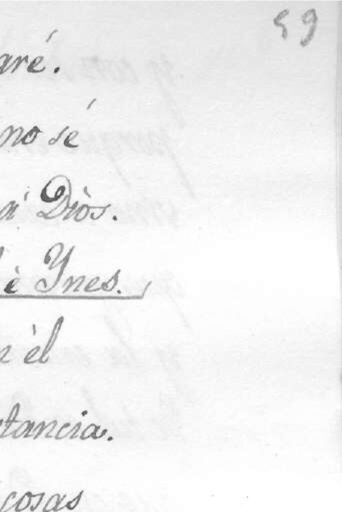 59
aré.
no sé
á Diòs.
è Ynes.
n èl
stancia.
cosas